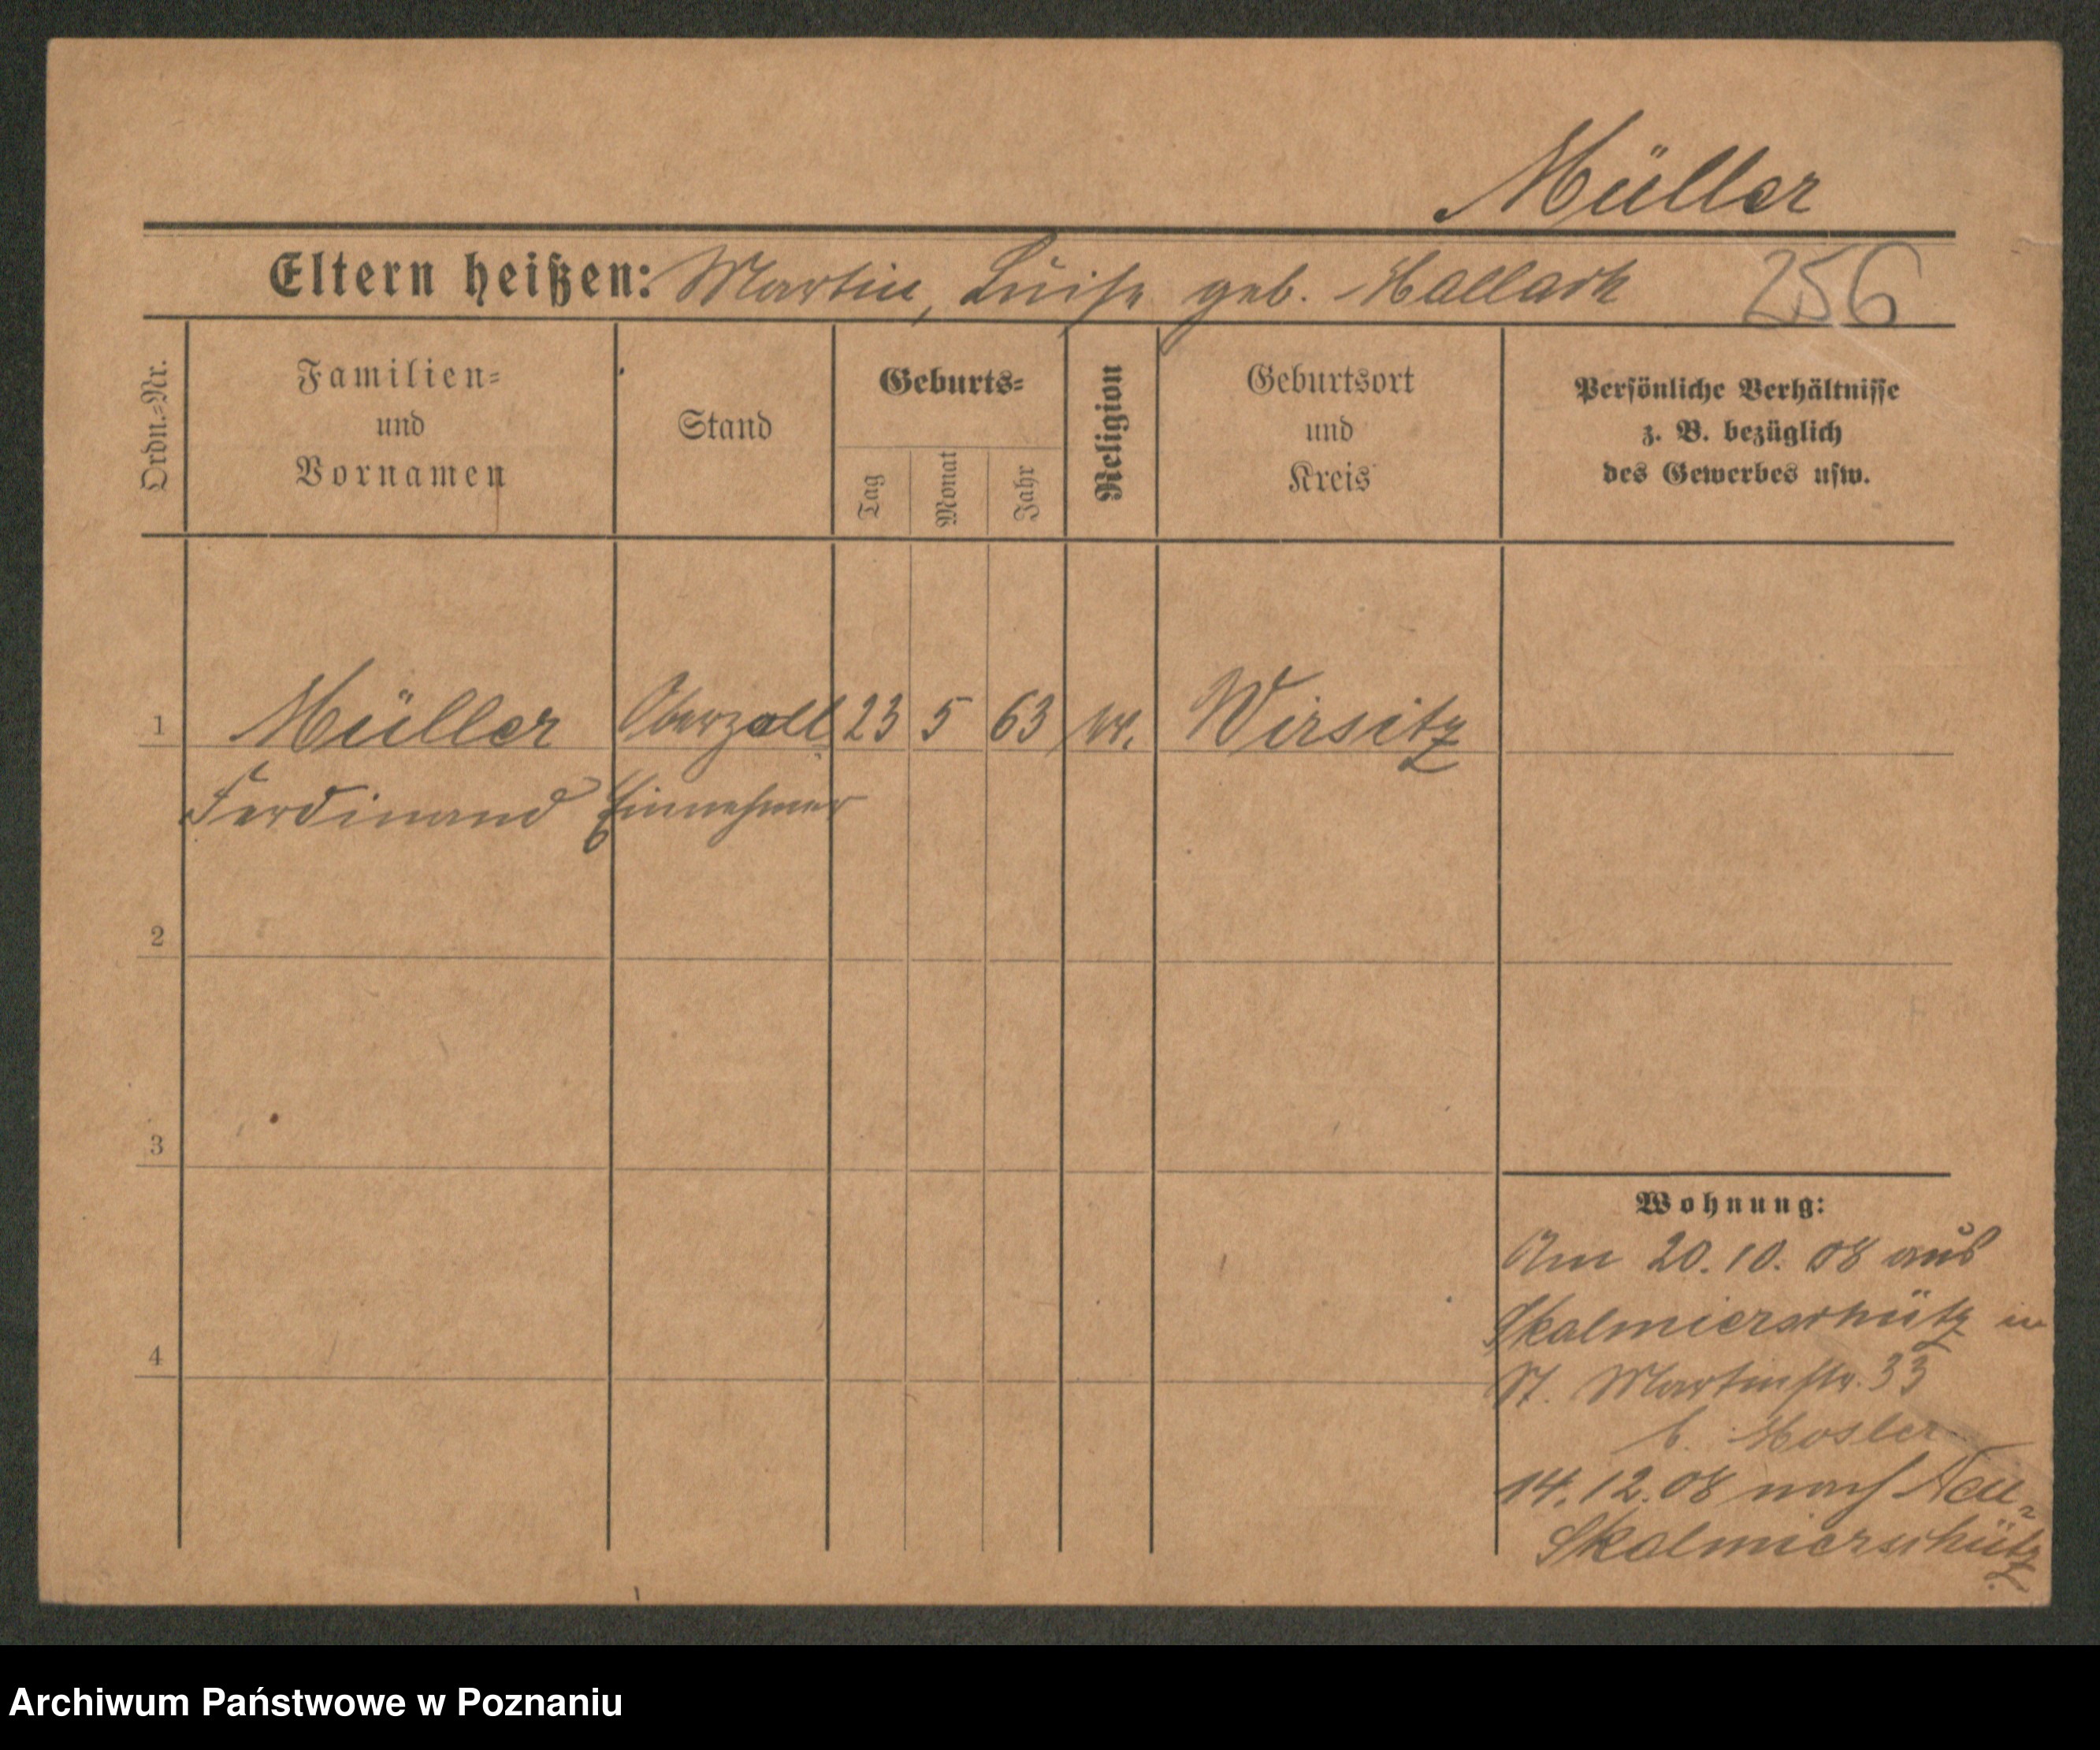 Müller
Eltern heißen: Martin, Luise geb. Hallack 256
Ordn.-Nr.
Familien-
und
Vornamen
Stand
Geburts-
Tag
Monat
Jahr
Religion
Geburtsort
und
Kreis
Persönliche Verhältnisse
z. B. bezüglich
des Gewerbes usw.
1 Müller Oberzoll 23 5 63 Wirsitz
Ferdinand Einnehmer
2
3
4
Wohnung:
Am 20.10.08 aus
Skalmierschütz in
St. Martinstr. 33
b. Hosler
14.12.08 nach Neu-
Skalmierschütz.
Archiwum Państwowe w Poznaniu